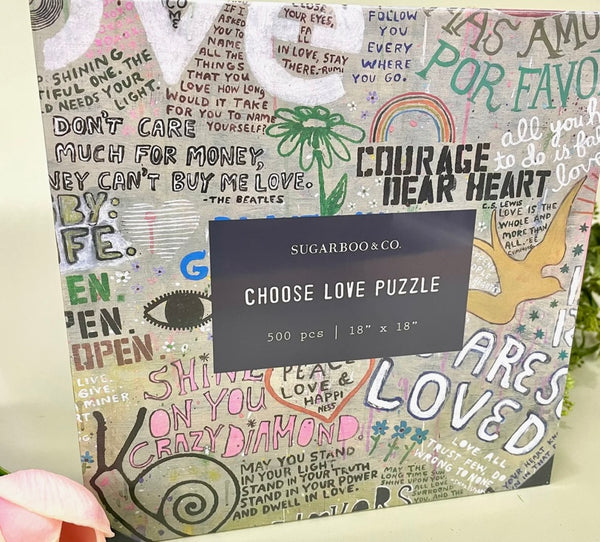 ove
COME
IF I
ASKED
YOU TO
NAME
ALL THE
THINGS
THAT YOU
LOVE HOW LONG
WOULD IT TAKE
FOR YOU TO NAME
YOURSELF?
CLOSE
YOUR EYES,
FALL
IN LOVE, STAY
THERE. -RUMI
FOLLOW
YOU
EVERY
WHERE
YOU GO.
MAS AMOR
POR FAVO
SHINING
TIFUL ONE. THE
LD NEEDS YOUR
LIGHT.
DON'T CARE
MUCH FOR MONEY,
NEY CAN'T BUY ME LOVE.
-THE BEATLES
COURAGE
DEAR HEART
C.S. LEWIS
all you h
to do is fal
love
LOVE IS THE
WHOLE AND
MORE THAN
ALL. -EE
CUMMINGS
BY:
FE.
G
SUGARBOO & CO.
CHOOSE LOVE PUZZLE
500 pcs | 18" x 18"
EN.
PEN.
OPEN.
LIVE.
GIVE.
MINER
ART
SHINE
ON YOU
CRAZY DIAMOND.
PEACE
LOVE &
HAPPI
NESS
ARE
LOVED
LOVE ALL,
TRUST FEW, DO
WRONG TO NONE
YOUR HEART KN
IN THAT
MAY YOU STAND
IN YOUR LIGHT
STAND IN YOUR TRUTH
STAND IN YOUR POWER
AND DWELL IN LOVE.
MAY THE
LONG TIME SUN
SHINE UPON YOU,
ALL LOVE
SURROUND
YOU, AND THE